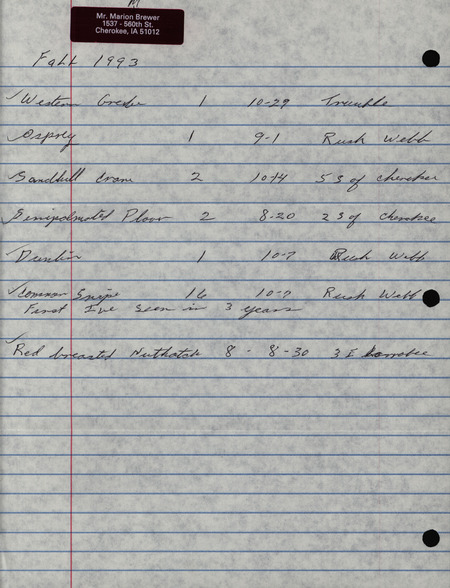 Mr. Marion Brewer
1537 - 560th St.
Cherokee, IA 51012
Fall 1993
✓Western Grebe 1 10-29 Trumble
✓Osprey 1 9-1 Rush Webb
✓Sandhill Crane 2 10-14 5 S of Cherokee
✓Semipalmated Plover 2 8-20 2 S of Cherokee
✓Dunlin 1 10-7 Rush Webb
✓Common Snipe 16 10-7 Rush Webb
First I've seen in 3 years
✓Red breasted Nuthatch 8 - 8-30 3 E